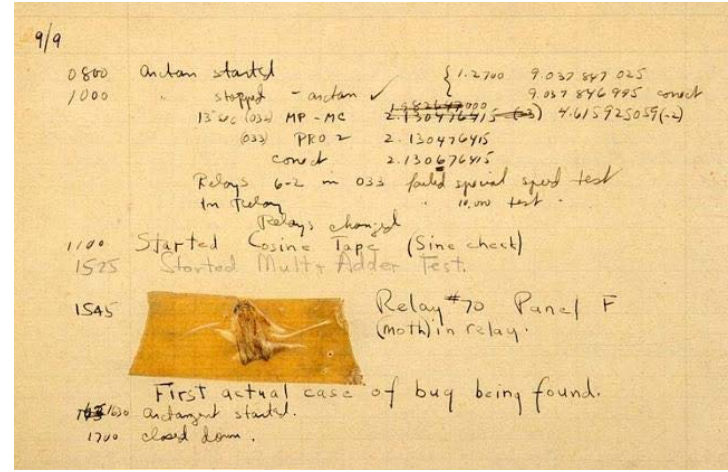 9/9
0800 Antan started { 1.2700 9.037 847 025
1000 " stopped - antan ✓ 9.037 846 995 conect
13"uc (032) MP - MC 1.982647000 2.130476415 (-3) 4.615925059(-2)
(033) PRO 2 2.130476415
conect 2.130676415
Relays 6-2 in 033 failed special speed test
In Relay " 10,000 test .
Relays changed
1100 Started Cosine Tape (Sine check)
1525 Started Mult+ Adder Test.
1545 Relay #70 Panel F
(moth) in relay.
First actual case of bug being found.
1630 antangent started.
1700 closed down.